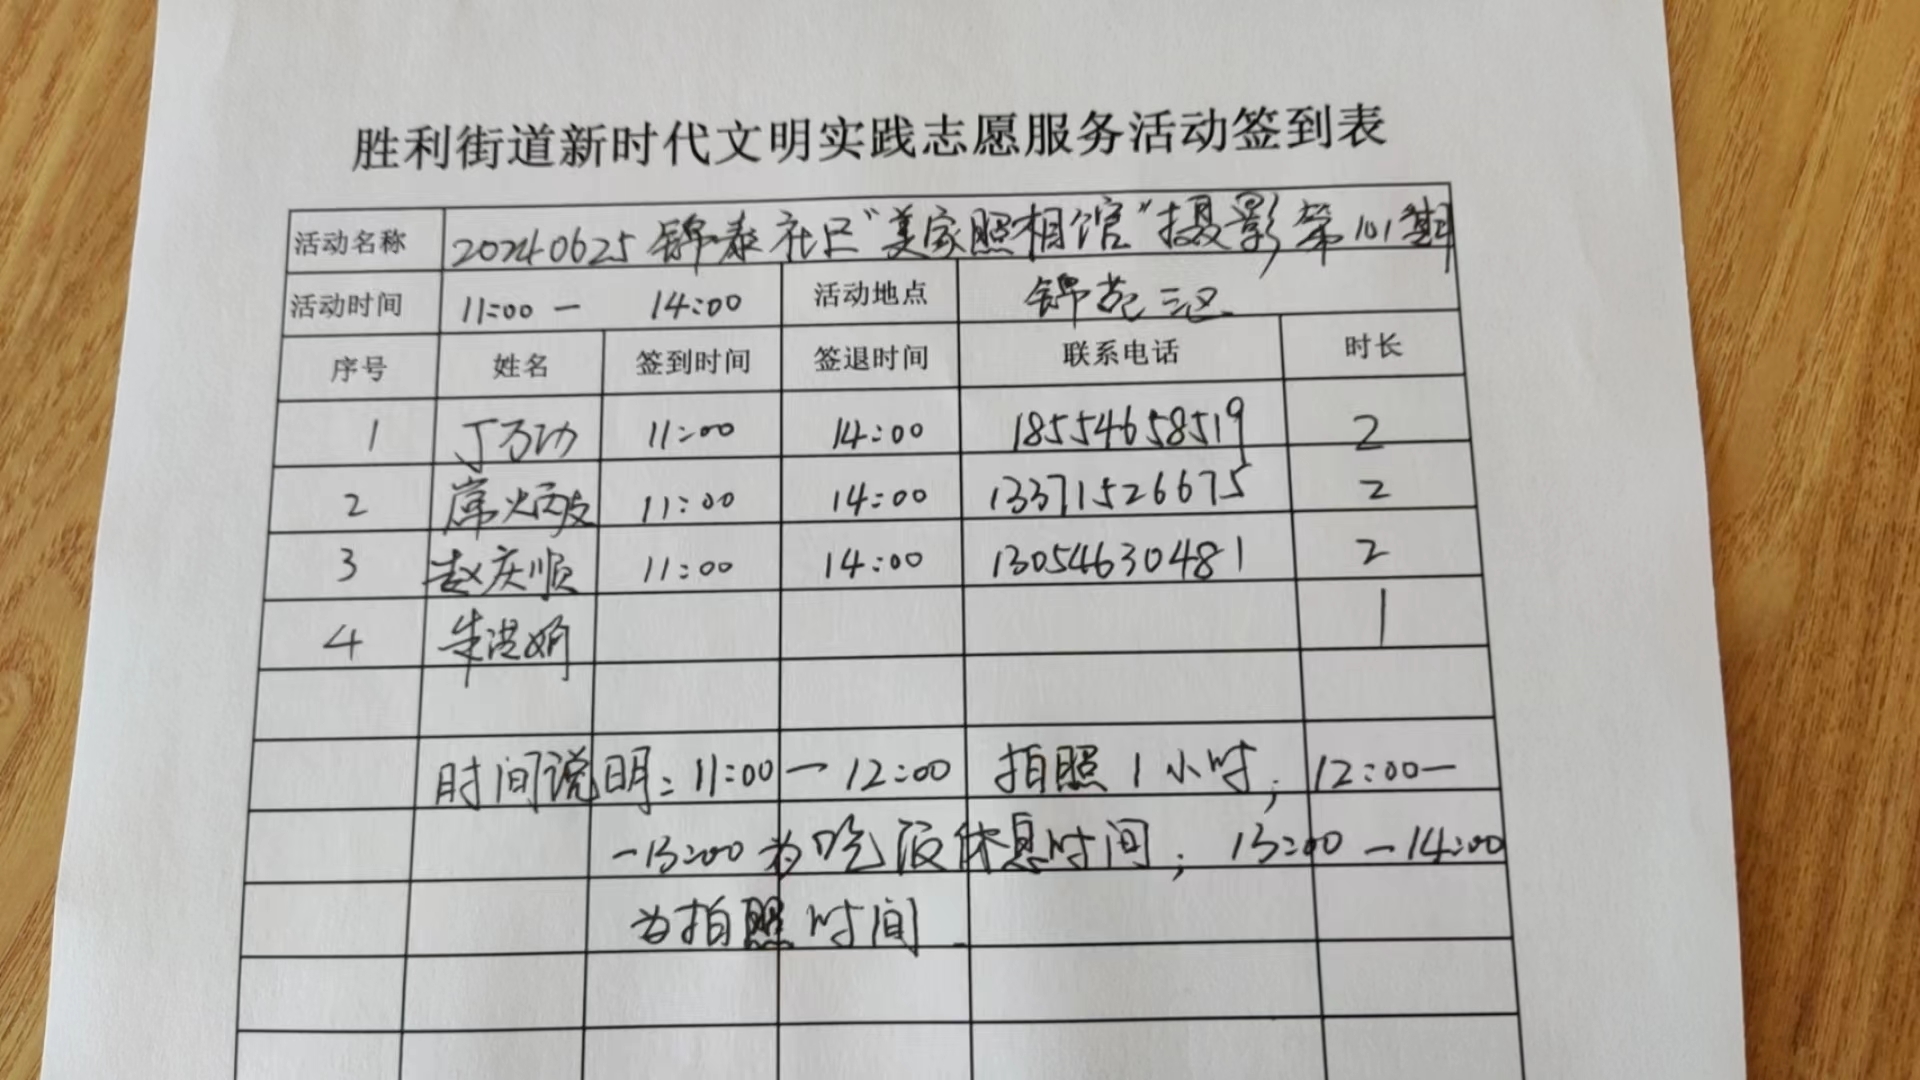 胜利街道新时代文明实践志愿服务活动签到表
活动名称 20240625锦泰社区"美家照相馆"摄影第101期
活动时间 11:00 — 14:00 活动地点 锦苑三区
序号 姓名 签到时间 签退时间 联系电话 时长
1 丁万功 11:00 14:00 18554658519 2
2 11:00 14:00 13371526675 2
3 赵庆顺 11:00 14:00 13054630481 2
4 朱洪娟 1
时间说明:11:00 — 12:00 拍照1小时;12:00—
—13:00为吃饭休息时间;13:00 — 14:00
为拍照时间.